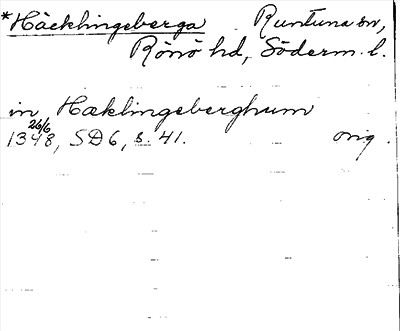 *Häcklingeberga Runtuna sn,
Rönö hd, Söderm. l.
in Hæklingeberghum
26/6
1348, SD6, s. 41. orig.